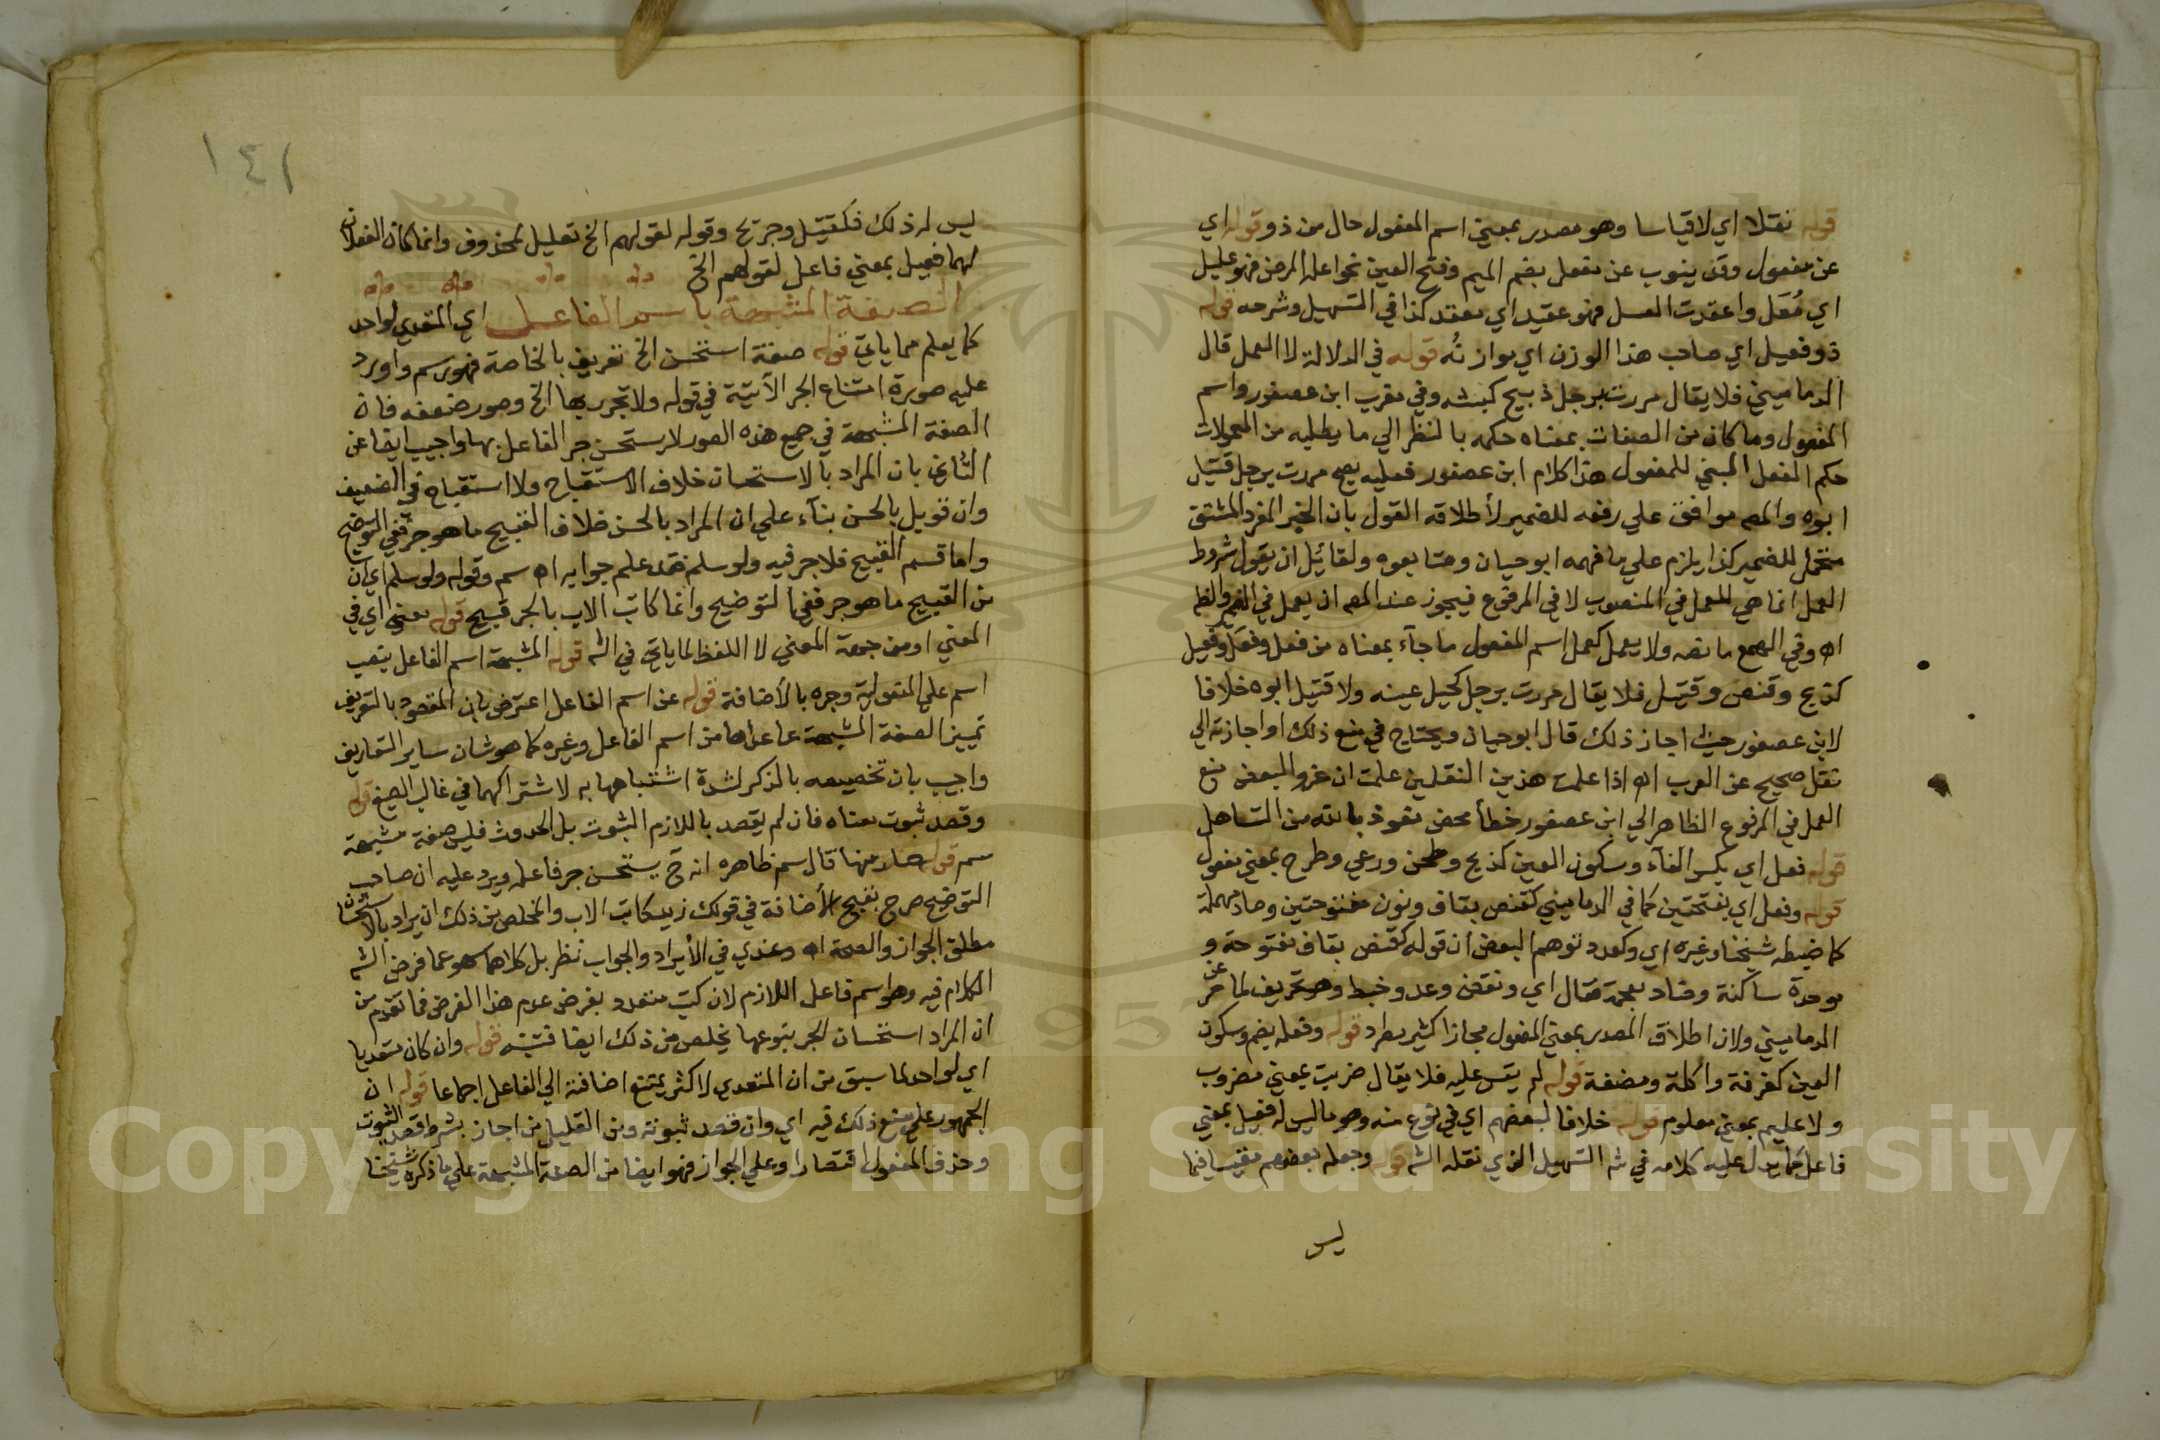 قوله نقلا اي لا قياسا وهو مصدر بمعني اسم المفعول حال من ذو وقوله اي
عن مفعول وقد ينوب عن مفعل بضم الميم وفتح العين نحو اعله المرض فهو عليل
اي مُعَل واعقدت العسل فهو عقيد اي معقد كذا في التسهيل وشرحه قوله
ذو فعيل اي صاحب هذا الوزن اي موازنُه قوله في الدلالة لا العمل قال
الدماميني فلا يقال مررت برجل ذبيح كبشه وفي مقرب ابن عصفور واسم
المفعول وما كان من الصفات بمعناه حكمه بالنظر الي ما يطلبه من المعمولات
حكم الفعل المبني للمفعول هذا كلام ابن عصفور فعليه يصح مررت برجل قتيل
ابوه والمص موافق علي رفعه للضمير لأطلاقه القول بان الخبر المفرد المشتق
متحمل للضمير كذا يلزم علي ما فهمه ابو حيان ومتابعوه ولقائل ان يقول شروط
العمل انما هي للعمل في المنصوب لا في المرفوع فيجوز عند المص ان يعمل في الضمير والظم
اه وفي الهمع ما نصه ولا يعمل كعمل اسم المفعول ما جآء بمعناه من فعل وفعَل وفعيل
كذبح وقنص وقتيل فلا يقال مررت برجل كحيل عينه ولا قتيل ابوه خلافا
لابن عصفور حيث اجاز ذلك قال ابو حيان ويحتاج في منع ذلك او اجازته الي
نقل صحيح عن العرب اه اذا علمت هذين النقلين علمت ان عزو البعض منع
العمل في المرفوع الظاهر الي ابن عصفور خطأ محض نعوذ بالله من التساهل
قوله فعل اي بكسر الفآء وسكون العين كذبح وطحن ورعي وطرح بمعني مفعول
قوله وفعل اي بفتحتين كما في الدماميني كقنص بقاف ونون مفتوحتين وصاد مهملة
كما ضبطه شيخنا وغيره اي وكعدد توهم البعض ان قوله كقنص بقاف مفتوحة و
موحدة ساكنة وضاد معجمة فقال اي ونقض وعد وخبط وهو تحريف لما مر عن
الدماميني ولان اطلاق المصدر بمعني المفعول مجازا كثير مطرد قوله وفعله بضم وسكون
العين كغرفة واكلة ومضغة قوله لم يقس عليه فلا يقال ضريب بمعني مضروب
ولا عليم بمعني معلوم قوله خلافا لبعضهم اي في نوع منه وهو ما ليس له فعيل بمعني
فاعل كما يدل عليه كلامه في شر التسهيل الذي نقله الشر قوله وجعله بعضهم مقيسا فيما
ليس
١٤١
ليس له ذلك فكقتيل وجريح وقوله لقولهم الخ تعليل لمحذوف وانما كان الفعلان
لهما فعيل بمعني فاعل لقولهم الخ
الصفة المشبهة باسم الفاعل اي المتعدي لواحد
كما يعلم مما ياتي قوله صفة استحسن الخ تعريف بالخاصة فهو رسم واورد
عليه صورة امتناع الجر الآتية في قوله ولا تجرر بها الخ وصور ضعفه فان
الصفة المشبهة في جميع هذه الصور لا يستحسن جر الفاعل بها واجيب ايضا عن
الثاني بان المراد بالاستحسان خلاف الاستقباح ولا استقباح في الضعيف
وان قوبل بالحسن بنآء علي ان المراد بالحسن خلاف القبيح ما هو جر ففي التوضيح
واما قسم القبيح فلا جر فيه ولو سلم فقد علم جوابه اه سم وقوله ولو سلم اي ان
من القبيح ما هو جر ففي التوضيح وانما كاتب الاب بالجر قبيح قوله معني اي في
المعني او من جهة المعني لا اللفظ لما ياتي في الشر قوله المشبهة اسم الفاعل بنصب
اسم علي المفعولية وجره بالأضافة قوله عن اسم الفاعل اعترض بان المقصود بالتعريف
تمييز الصفة المشبهة عما عداها من اسم الفاعل وغيره كما هو شان ساير التعاريف
واجيب بان تخصيصه بالذكر لشدة اشتباهها به لاشتراكهما في غالب الصيغ قوله
وقصد ثبوت معناه فان لم يقصد باللازم الثبوت بل الحدوث فليس صفة مشبهة
سم قوله صار منها قال سم ظاهره انه ح يستحسن جر فاعله ويرد عليه ان صاحب
التوضيح صرح بقبح الأضافة في قولك زيد كاتب الاب والمخلص من ذلك ان يراد بالاستحسان
مطلق الجواز والصحة اه وعندي في الأيراد والجواب نظر بل كلاهما سهو عما فرض الشر
الكلام فيه وهو اسم فاعل اللازم لان كتب متعد وبفرض عدم هذا الفرض فما تقدم من
ان المراد استحسان الجر بنوعها يخلص من ذلك ايضا فتنبه قوله وان كان متعديا
اي لواحد لما سبق من ان المتعدي لاكثر يمتنع اضافته الي الفاعل اجماعا قوله ان
الجمهور علي منع ذلك فيه اي وان قصد ثبوته ومن القليل من اجاز بشرط قصد الثبوت
وحذف المفعول اقتصارا وعلي الجواز فهو ايضا من الصفة المشبهة علي ما ذكره شيخنا
Copyright © King Saud University
1957